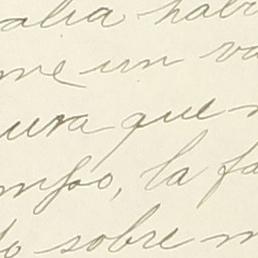 alia habi
me un va
ura que n
mpo, la fa
do sobre m